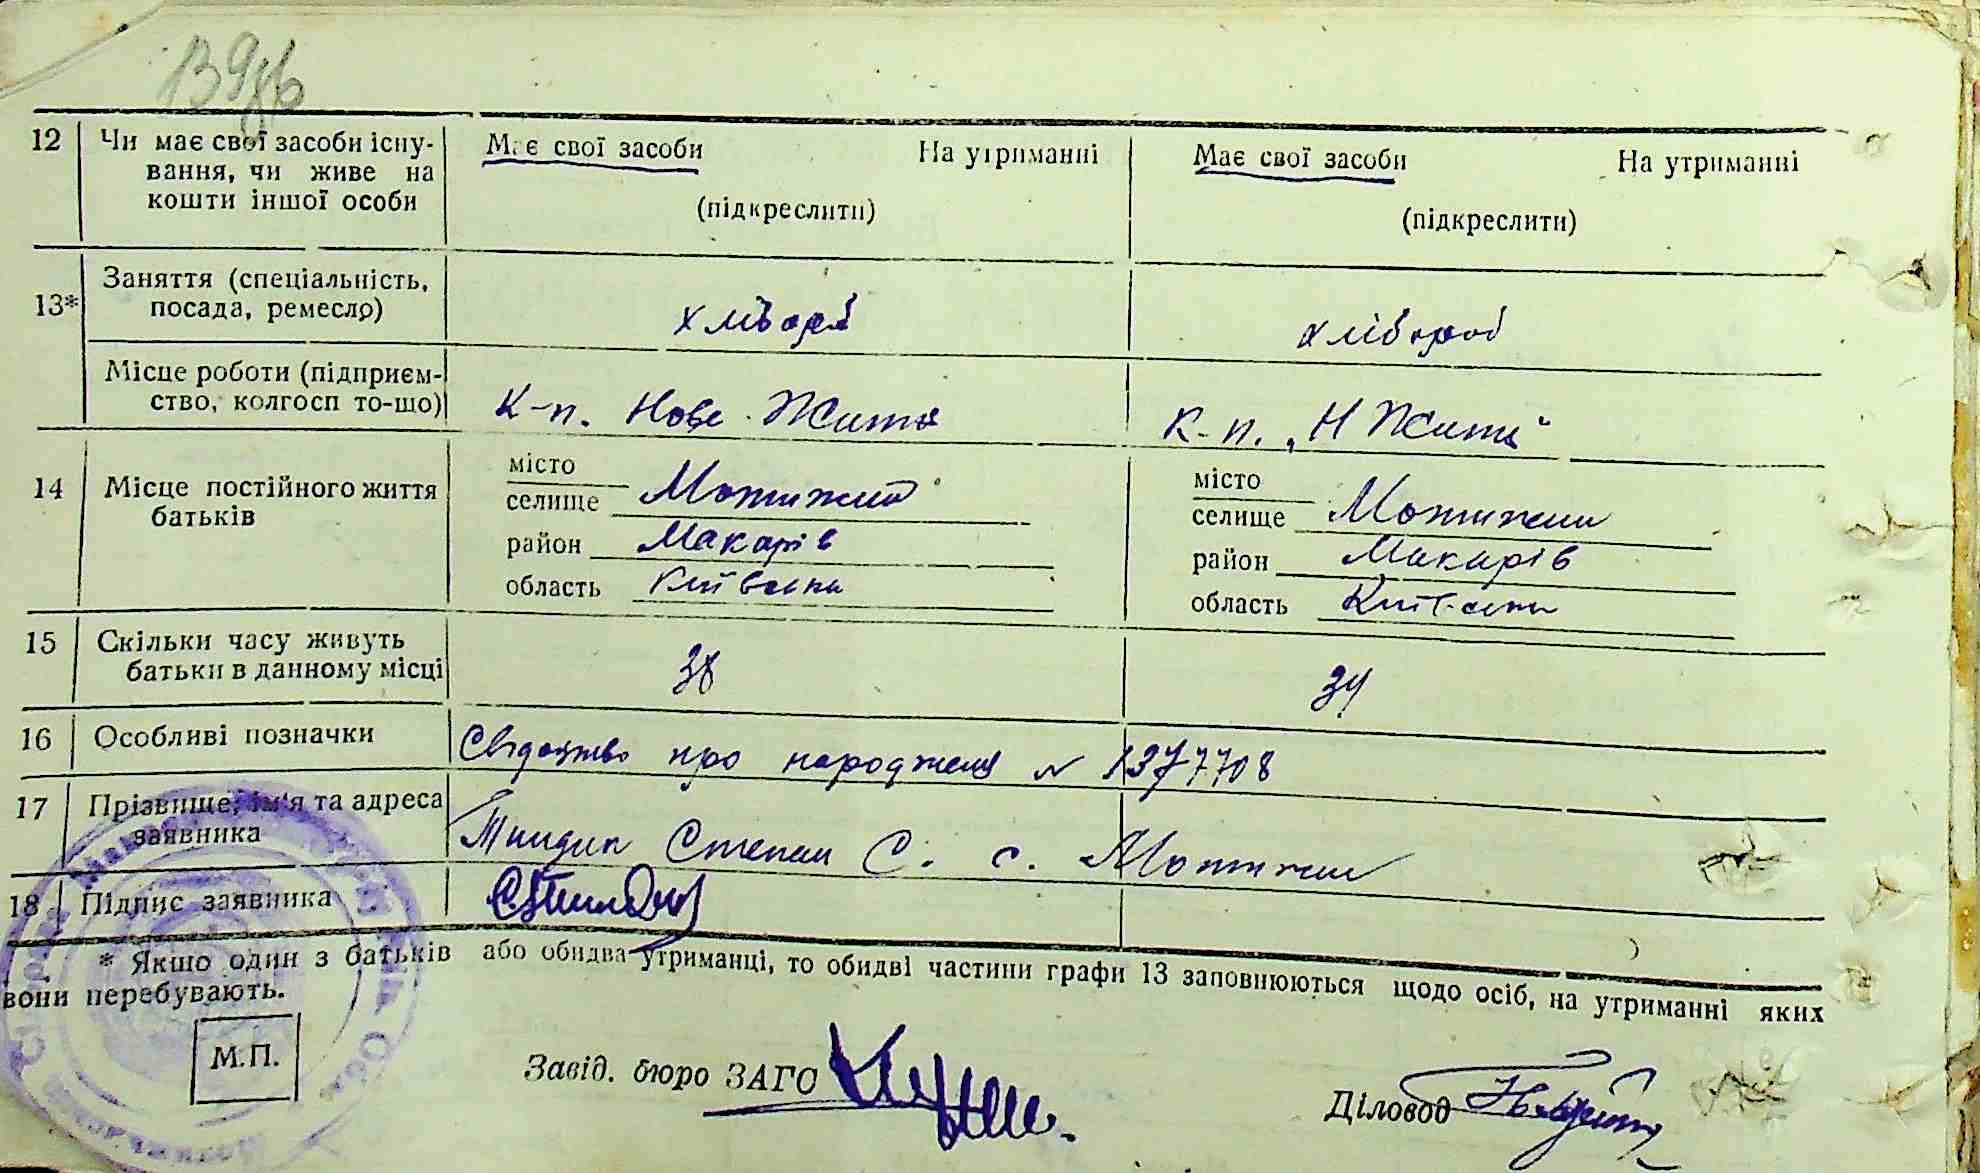 139
12 Чи має свої засоби існу- Має свої засоби На утриманні Має свої засоби На утриманні
вання, чи живе на
кошти іншої особи (підкреслити) (підкреслити)
13* Заняття (спеціальність, хлібороб хлібороб
посада, ремесло)
Місце роботи (підприєм- К-п. Нове Життя К-п. „Н Життя"
ство, колгосп то-що)
14 Місце постійного життя місто місто
батьків селище Мотижин селище Мотижин
район Макарів район Макарів
область Київська область Київська
15 Скільки часу живуть 38 34
батьки в данному місці
16 Особливі позначки Свідоцтво про народження № 1377708
17 Прізвище, ім'я та адреса
заявника Степан С. с. Мотижин
18 Підпис заявника
* Якшо один з батьків або обидва утриманці, то обидві частини графи 13 заповнюються щодо осіб, на утриманні яких
вони перебувають.
М.П.
Завід. бюро ЗАГС
Діловод